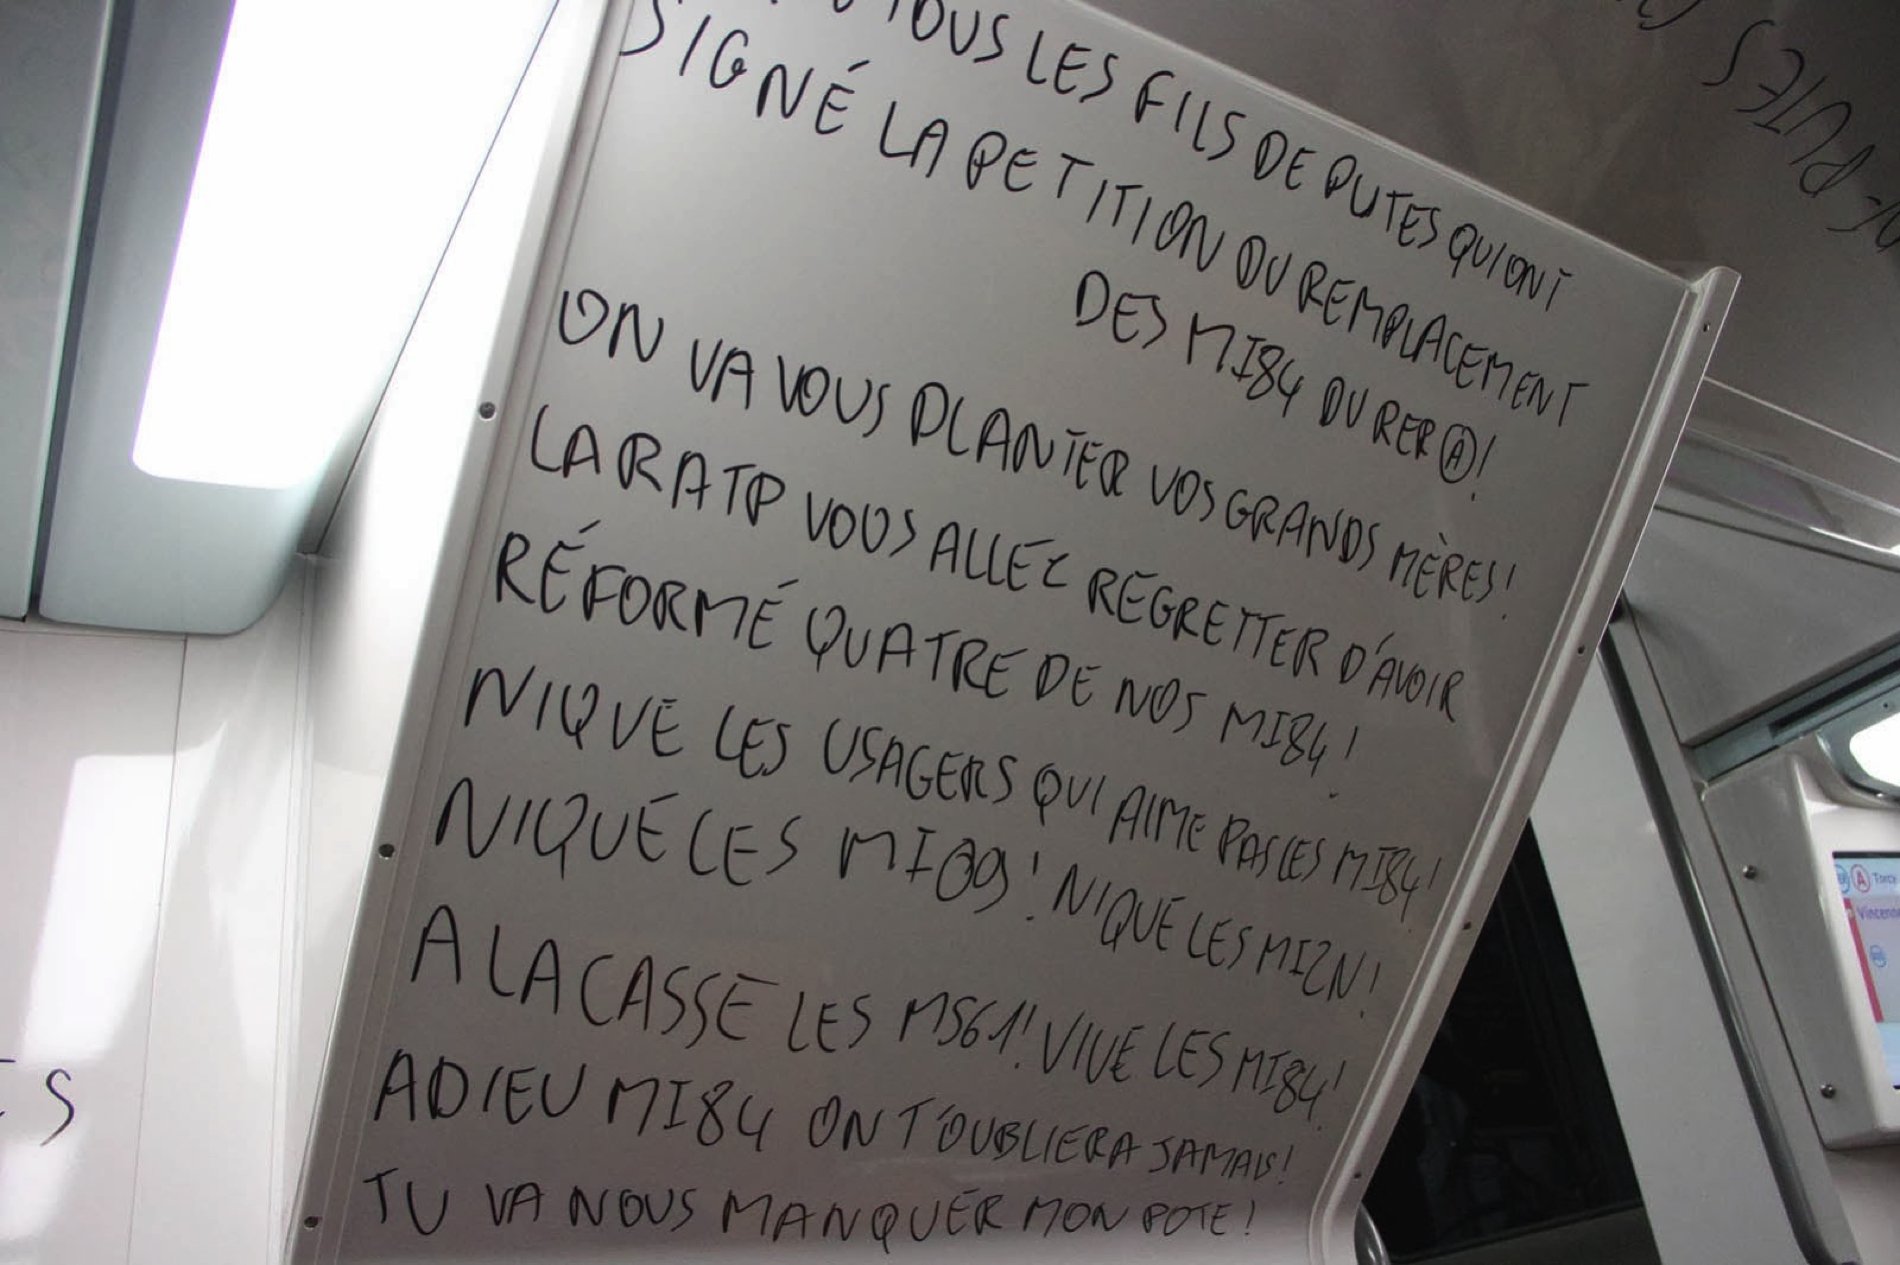 TOUS LES FILS DE PUTES QUI ONT
SIGNÉ LA PETITION DU REMPLACEMENT
DES MI84 DU RER Ⓐ!
ON VA VOUS PLANTER VOS GRANDS MÈRES!
LA RATP VOUS ALLEZ REGRETTER D'AVOIR
RÉFORMÉ QUATRE DE NOS MI84!
NIQUE LES USAGERS QUI AIME PAS LES MI84!
NIQUE LES MI09! NIQUE LES MI2N!
A LA CASSE LES MS61! VIVE LES MI84!
ADIEU MI84 ON T'OUBLIERA JAMAIS!
TU VA NOUS MANQUER MON POTE!
PUTES
ES
A Torcy
Vincenne